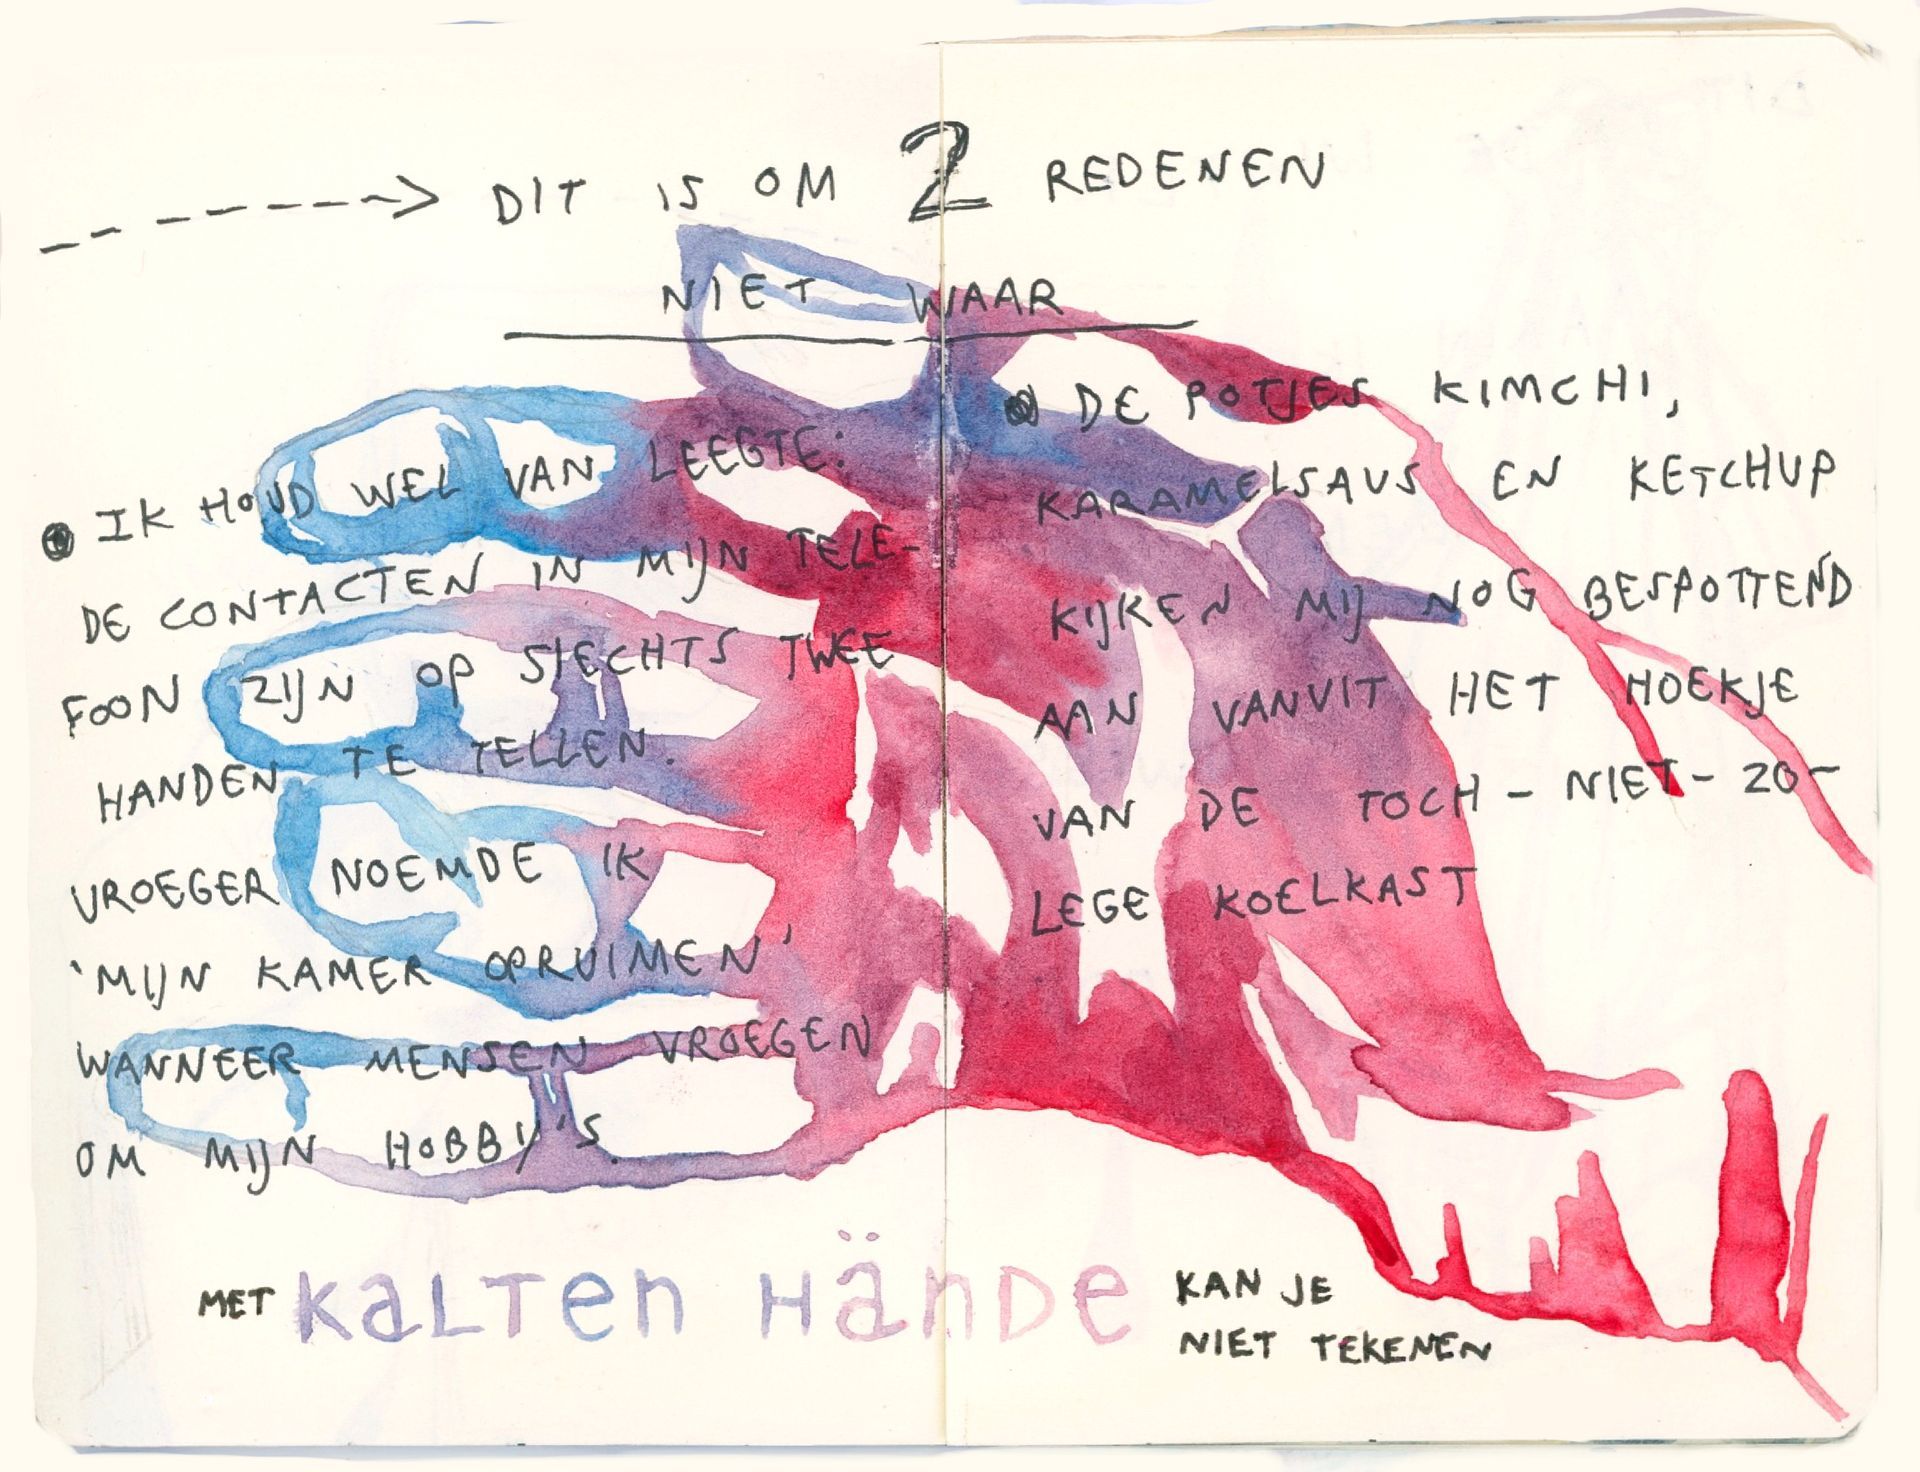 DIT IS OM 2 REDENEN
NIET WAAR
IK HOUD WEL VAN LEEGTE:
DE CONTACTEN IN MIJN TELE-
FOON ZIJN OP SLECHTS TWEE
HANDEN TE TELLEN.
VROEGER NOEMDE IK
'MIJN KAMER OPRUIMEN'
WANNEER MENSEN VROEGEN
OM MIJN HOBBY'S.
DE POTJES KIMCHI,
KARAMELSAUS EN KETCHUP
KIJKEN MIJ NOG BESPOTTEND
AAN VANUIT HET HOEKJE
VAN DE TOCH-NIET-ZO-
LEGE KOELKAST
MET KALTEN HÄNDE KAN JE
NIET TEKENEN